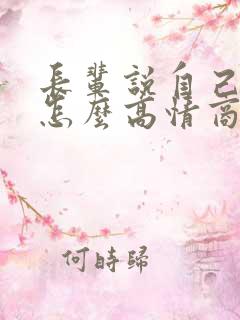 長輩說自己
怎麼高情商
何時歸